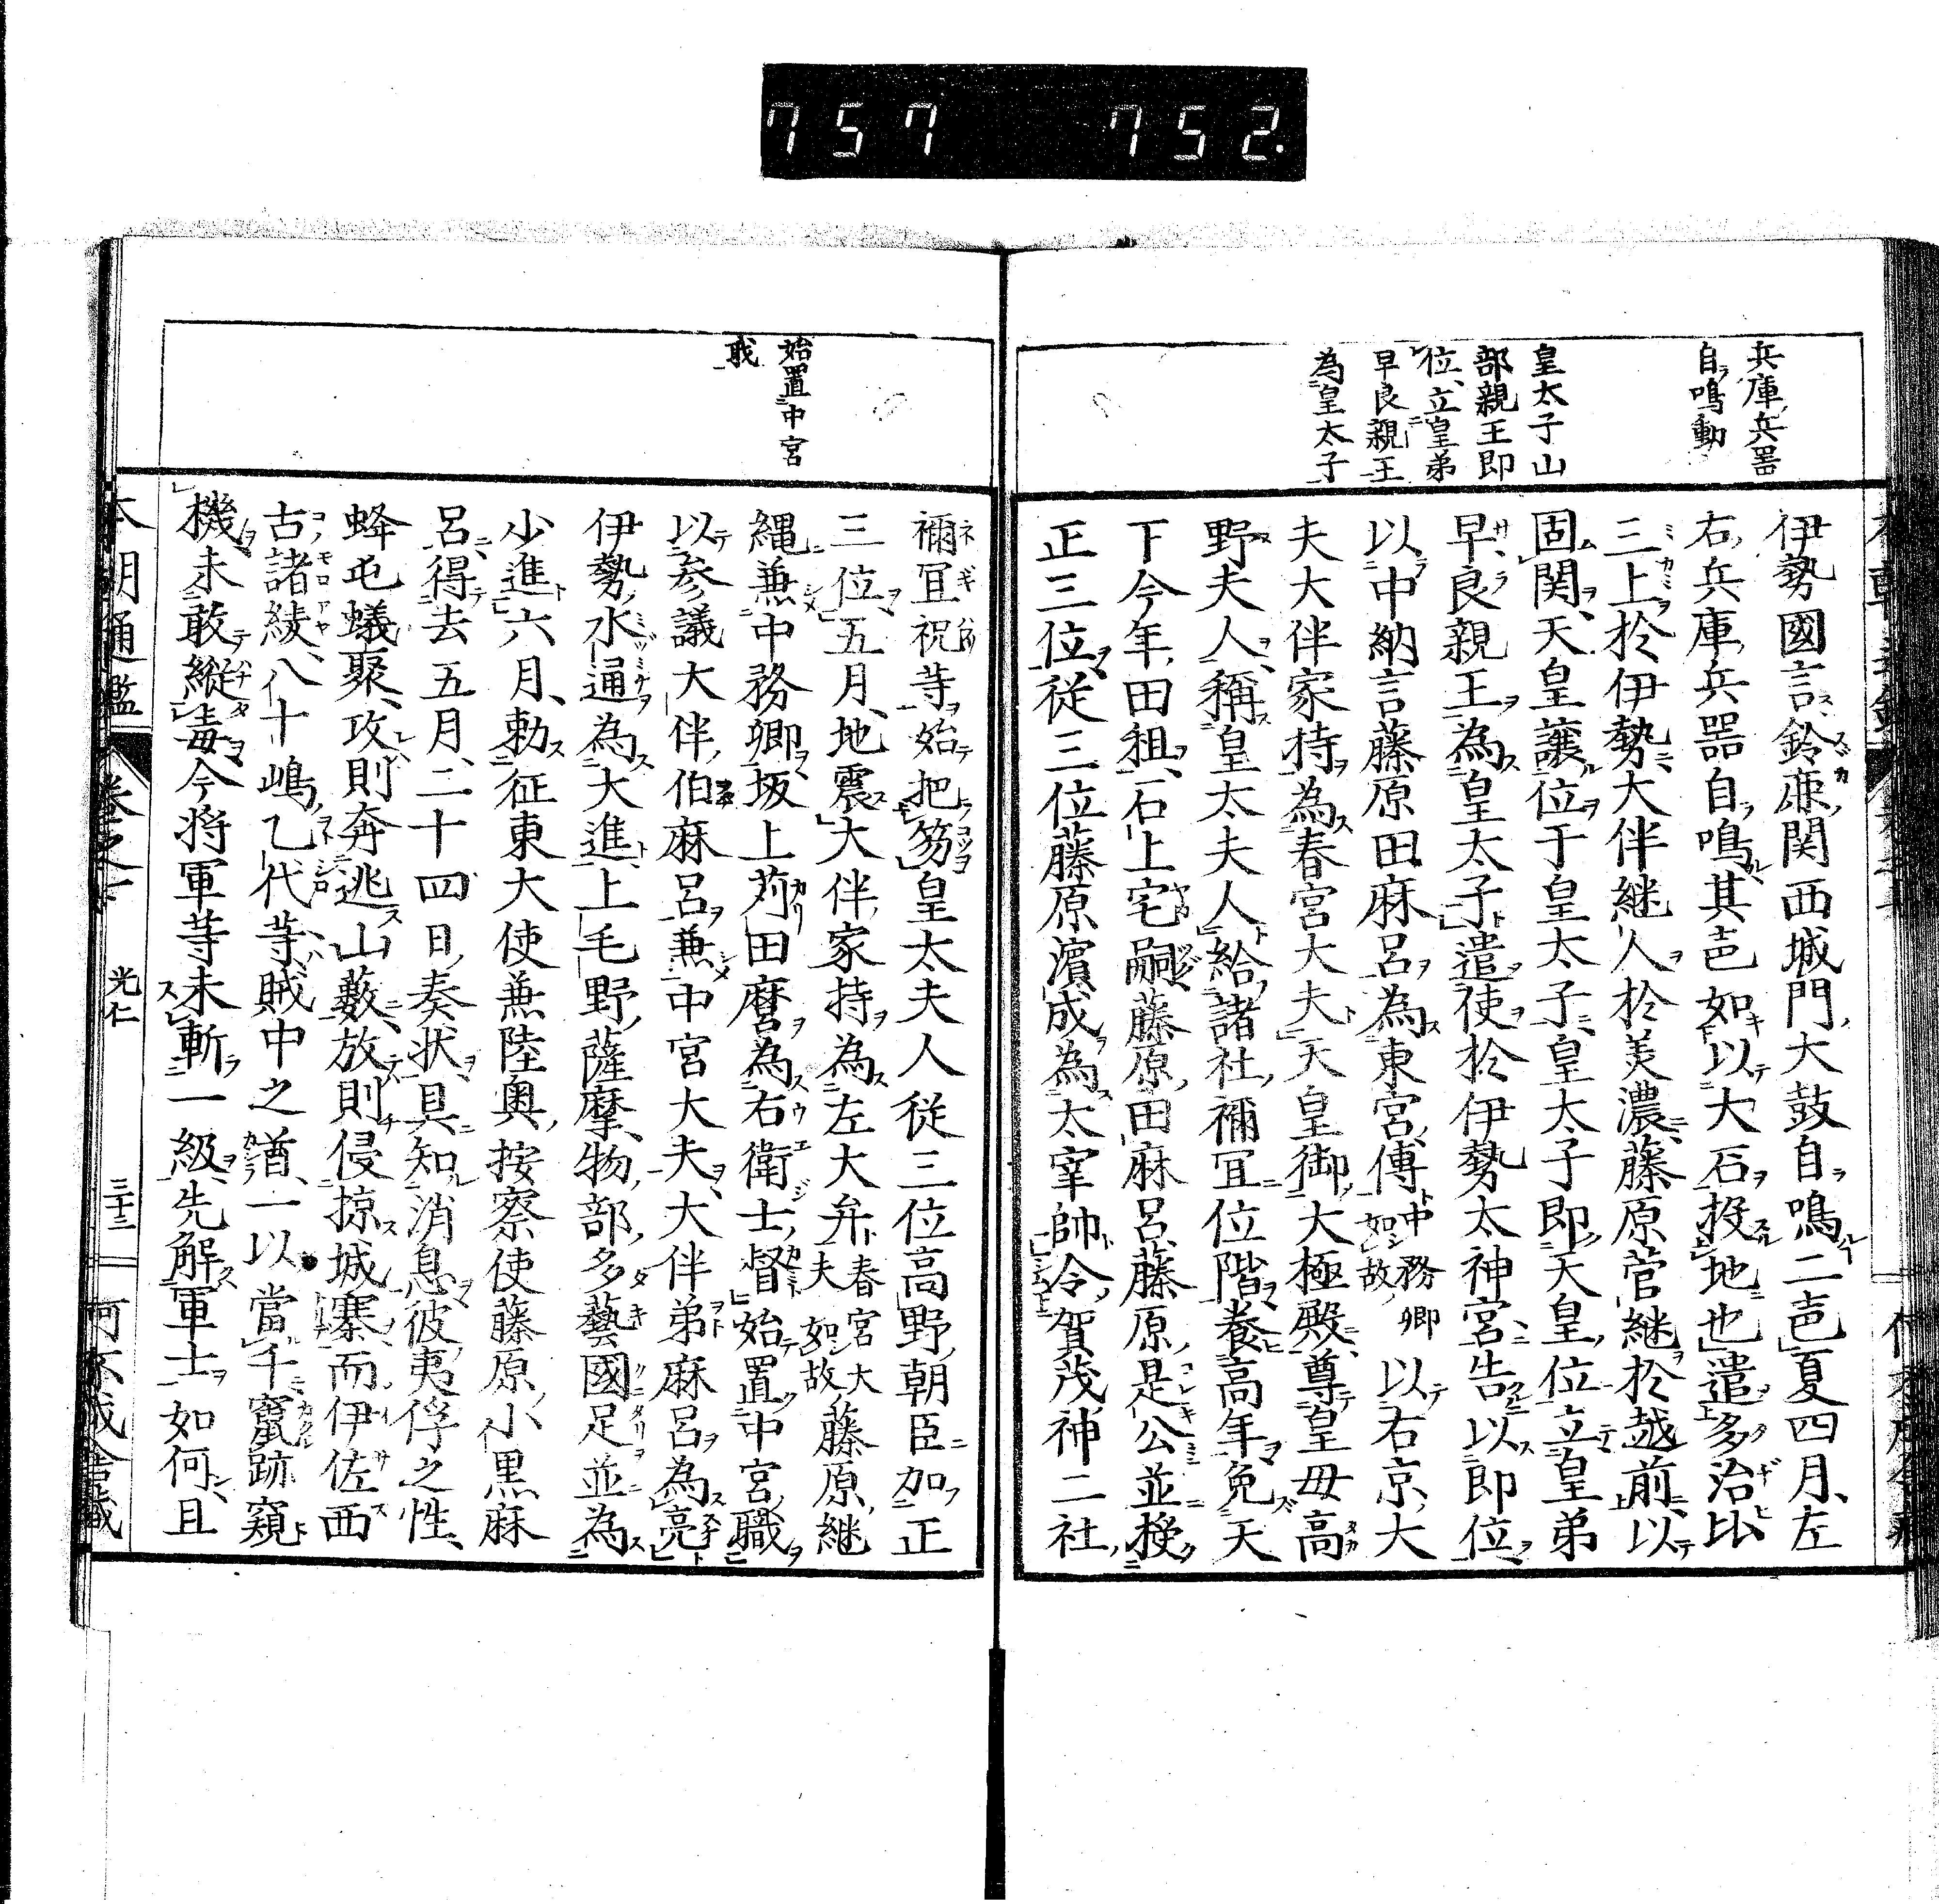 757 752.
兵庫兵噐
自鳴動
皇太子山
部親王即
位立皇弟
早良親王
為皇太子
伊勢國言鈴鹿関西城門大鼓自鳴二声夏四月左
右兵庫兵噐自鳴其声如以大石投地也遣多治比
三上於伊勢大伴継人於美濃藤原菅継於越前以
固関天皇譲位于皇太子皇太子即天皇位立皇弟
早良親王為皇太子遣使於伊勢太神宮告以即位
以中納言藤原田麻呂為東宮傅中務卿如故以右京大
夫大伴家持為春宮大夫天皇御大極殿尊皇母高
野夫人稱皇太夫人給諸社禰冝位階養高年免天
下今年田租石上宅嗣藤原田麻呂藤原是公並授
正三位従三位藤原濱成為太宰帥令賀茂神二社
始置中宮
職
禰冝祝等始把笏皇太夫人従三位高野朝臣加正
三位五月地震大伴家持為左大弁春宮大夫如故藤原継
縄兼中務卿坂上苅田麿為右衛士督始置中宮職
以参議大伴伯麻呂兼中宮大夫大伴弟麻呂為亮
伊勢水通為大進上毛野薩摩物部多藝國足並為
少進六月勅征東大使兼陸奥按察使藤原小黒麻
呂得去五月二十四日奏状具知消息彼夷俘之性
蜂屯蟻聚攻則奔逃山藪放則侵掠城寨而伊佐西
古諸綾八十嶋乙代等賊中之酋一以當千竄跡窺
機未敢縦毒今将軍等未斬一級先解軍士如何且
本朝通鑑 巻之十 光仁 三十三